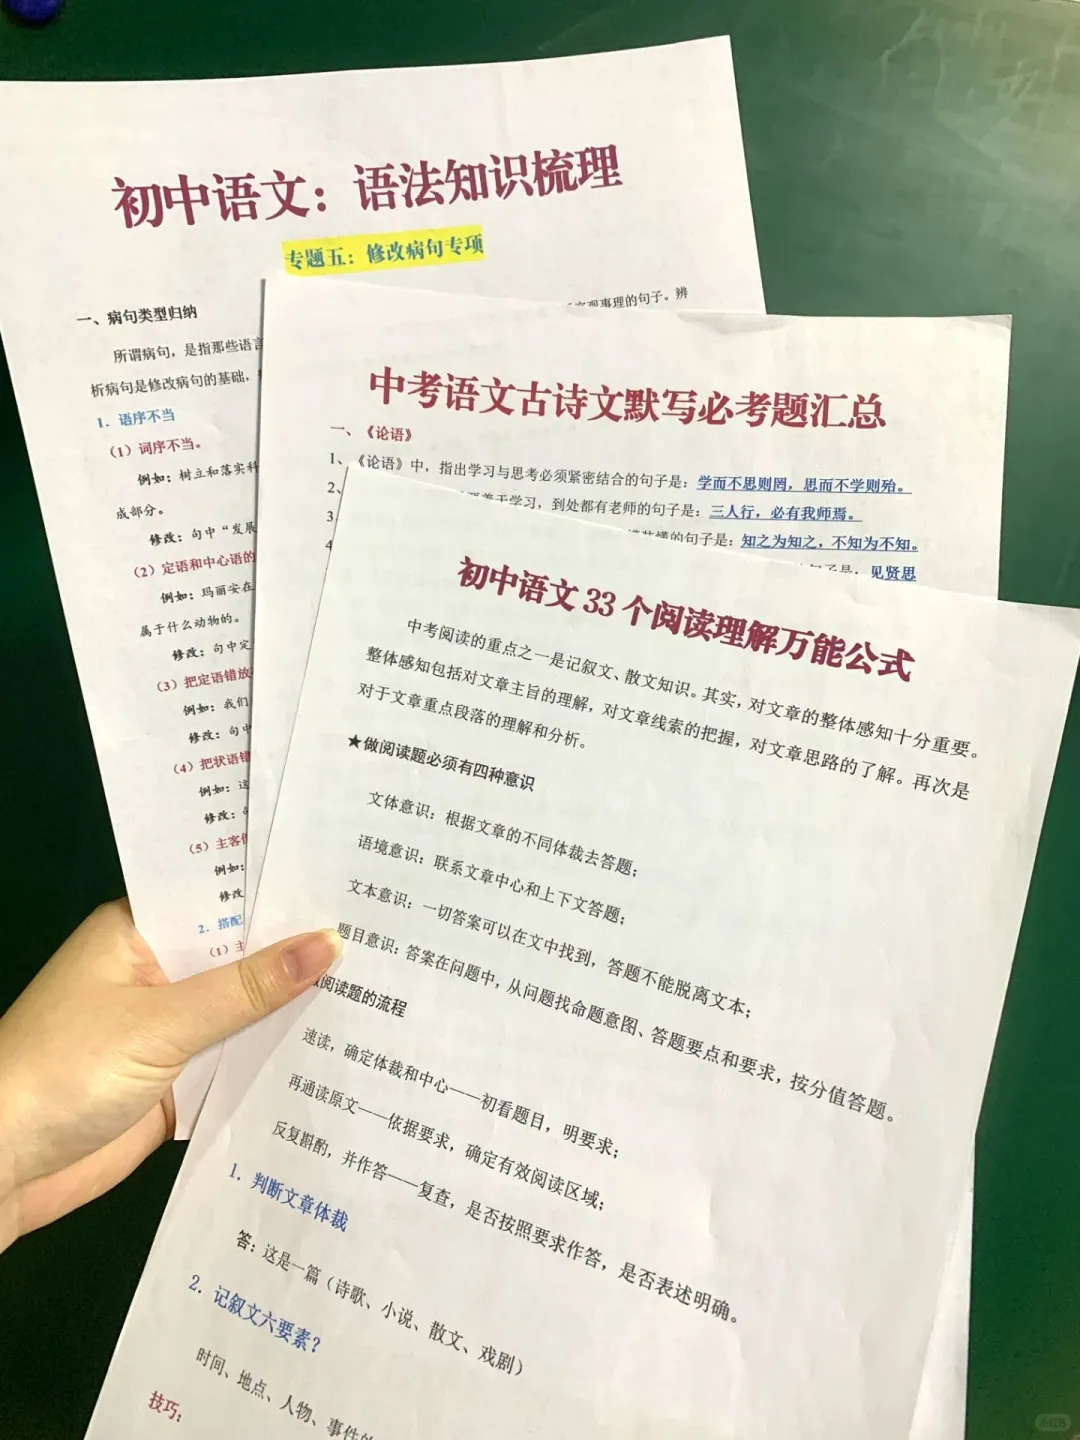 初中语文：语法知识梳理
专题五：修改病句专项
一、病句类型归纳
所谓病句，是指那些语言
客观事理的句子。辨
析病句是修改病句的基础，
1．语序不当
（1）词序不当。
例如：树立和落实科
成部分。
修改：句中“发展
（2）定语和中心语的
例如：玛丽安在
属于什么动物的。
修改：句中定
（3）把定语错放
例如：我们
修改：句中
（4）把状语错
例如：这
修改：
（5）主客
例如：
修改
2．搭配
（1）主
中考语文古诗文默写必考题汇总
一、《论语》
1、《论语》中，指出学习与思考必须紧密结合的句子是：学而不思则罔，思而不学则殆。
2、
善于学习，到处都有老师的句子是：三人行，必有我师焉。
3
懂的句子是：知之为知之，不知为不知。
4
句子是：见贤思
初中语文 33 个阅读理解万能公式
中考阅读的重点之一是记叙文、散文知识。其实，对文章的整体感知十分重要。
整体感知包括对文章主旨的理解，对文章线索的把握，对文章思路的了解。再次是
对于文章重点段落的理解和分析。
★做阅读题必须有四种意识
文体意识：根据文章的不同体裁去答题；
语境意识：联系文章中心和上下文答题；
文本意识：一切答案可以在文中找到，答题不能脱离文本；
题目意识：答案在问题中，从问题找命题意图、答题要点和要求，按分值答题。
做阅读题的流程
速读，确定体裁和中心——初看题目，明要求；
再通读原文——依据要求，确定有效阅读区域；
反复斟酌，并作答——复查，是否按照要求作答，是否表述明确。
1．判断文章体裁
答：这是一篇（诗歌、小说、散文、戏剧）
2．记叙文六要素？
时间、地点、人物、事件的
技巧：
小红书